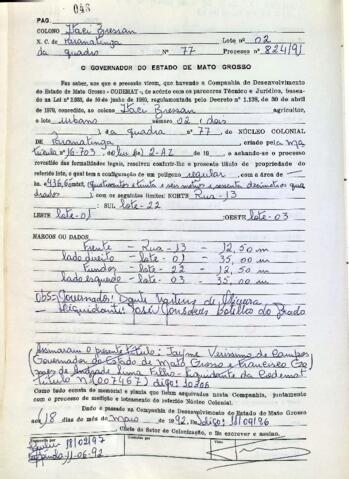 046
PAG.
COLONO Itaci Bressan
N. C. de Paranatinga Lote nº 02
da quadra Nº 77 Processo nº 824/91
O GOVERNADOR DO ESTADO DE MATO GROSSO
Faz saber, aos que o presente virem, que havendo a Companhia de Desenvolvimento
do Estado de Mato Grosso - CODEMAT -, de acôrdo com os parceres Técnico e Jurídico, basea-
do na Lei nº 2.933, de 10 de junho de 1969, regulamentada pelo Decreto nº 1.138, de 30 de abril
de 1970, concedido, ao colono Itaci Bressan o
lote urbano número 02 / dois
) da quadra nº 77 do NÚCLEO COLONIAL
DE Paranatinga, criado pela Ma
trícula 16-703 de 2-AZ de 19 , e achando-se o processo
revestido das formalidades legais, resolveu conferir-lhe o presente título de propriedade do
referido lote, o qual tem a configuração de um polígono regular, com a área de
436,60
quadrado), com os seguintes limites: NORTE Rua-13
SUL lote-22
LESTE lote-01 OESTE lote-03
MARCOS OU DADOS
frente - Rua-13 - 12,50 m
lado direito - lote-01 - 35,00 m
fundos - lote-22 - 12,50 m
lado esquerdo - lote-03 - 35,00 m
Obs= Governador: Dante Martins de Oliveira
Liquidante: José Gonsalves Botelho do Prado
Assinaram o presente título: Jayme Verissimo de Campos
Governador do Estado de Mato Grosso e Francisco Go
mes de Andrade Lima Filho - Liquidante da Codemat
título Nº(007467) digo: 10806
Como tudo consta do memorial e planta que ficam arquivados nesta Companhia, juntamente
com o processo de medição e loteamento do referido Núcleo Colonial.
Dado e passado na Companhia de Desenvolvimento do Estado de Mato Grosso
aos (18 dias do mês de Maio de 1992. Em digo: 18/09/96
Chefe do Setor de Colonização, o fiz escrever e assino.
18/02/97
11-06-92